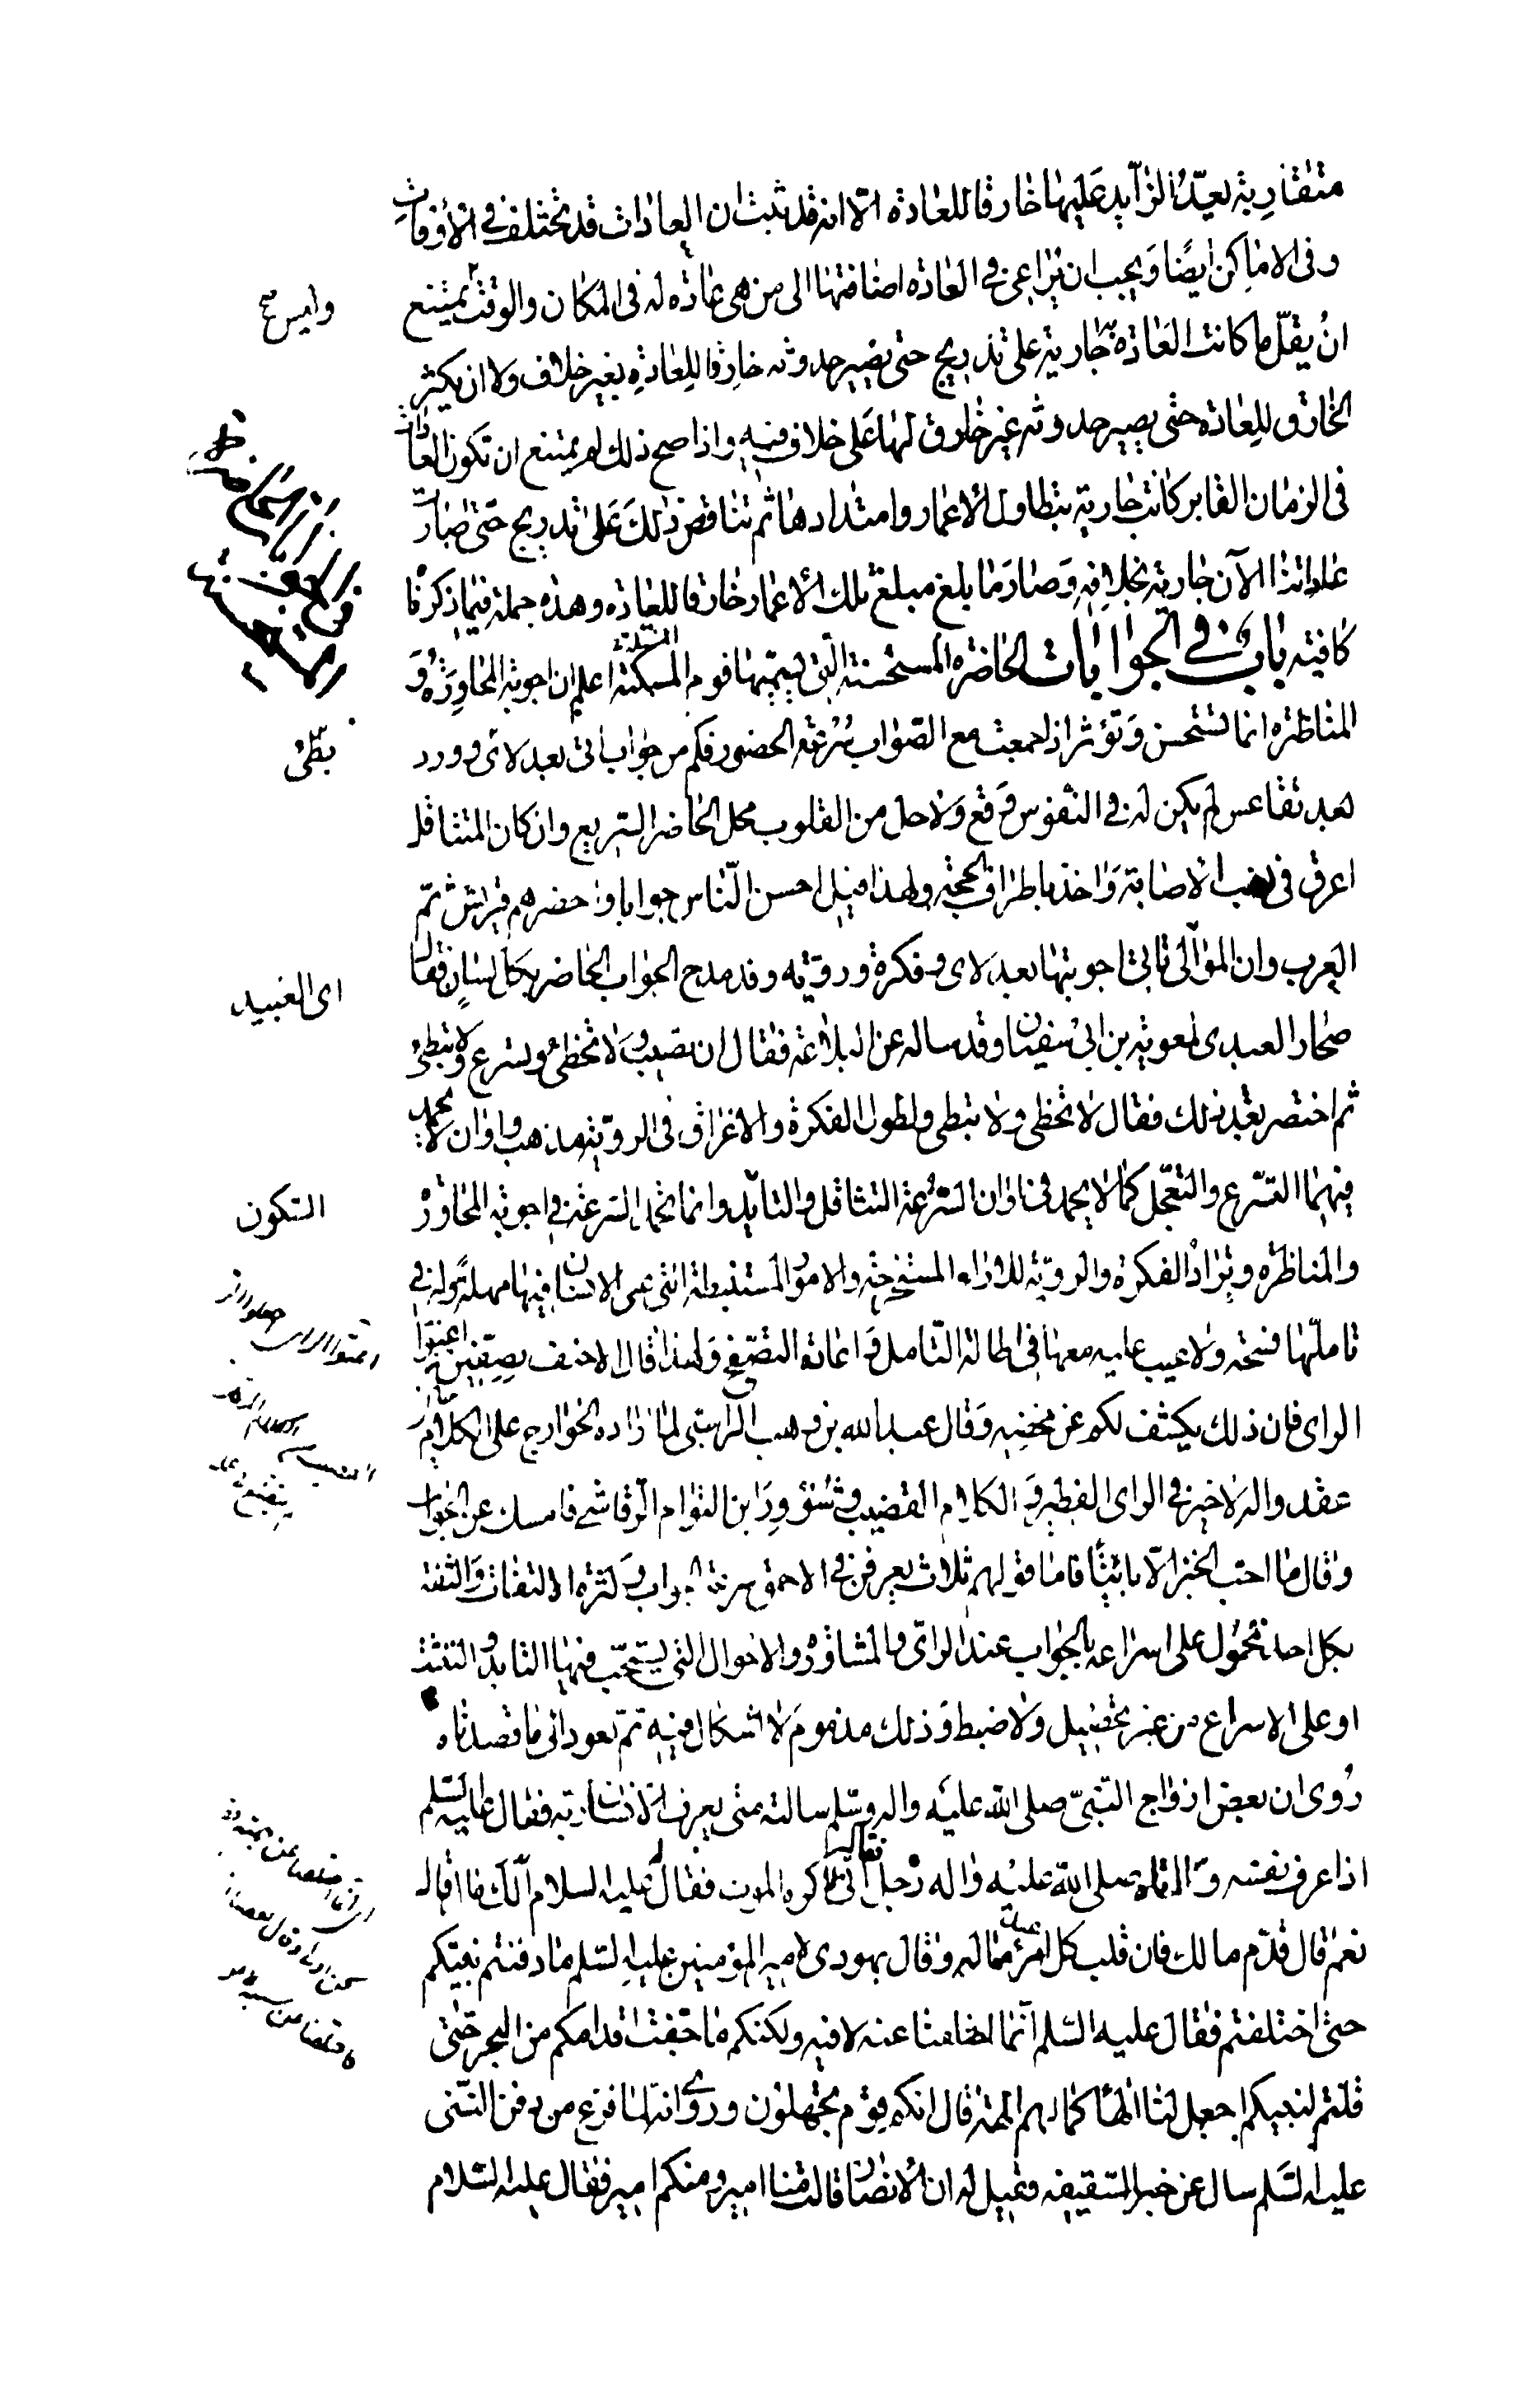 متقاربة يعدّ الزايد عليها خارقا للعادة الا انه قد ثبت ان العادات قد تختلف في الاوقات
وفى الاماكن ايضًا وَيجب ان يراعى في العادة اضافتها الى من هى عادة له فى المكان والوقت يمتنع
انْ يقلّ ما كانت العَادة جارية على تدريج حتى يصير حدوثه خارقا للعادةِ بغير خلاف ولا ان يكثر
الخارق للعادة حتى يصير حدوثه غير خارق لها عَلى خلاف فيه واذا صح ذلك لم يمتنع ان تكون العادات
فى الزمان الغابر كانت جارية بتطاول الأعمار وامتدادها ثم تناقض ذلكَ عَلى تدريج حتى صارت
عاداتنا الآن جارية بخلافِهِ وَصَارَ ما بلغ مبلغ تلك الأعمار خارقا للعادة وهذه جملة فيما ذكرنا
كافية باب في الجوابات الحاضرة المستحسنة التى يسمّيها قوم المسكتة اعلم ان اجوبة المحاورَة و
المناظرة انما تستحسن وَتؤثر اذا جمعت مع الصّواب سُرعة الحضور فكم من جواب اتى بعد لاى وورد
بعد تقاعس لم يكن له في النفوس وقع وَلا حل من القلوب محل الحاضر السّريع وان كان المتثاقل
اعرق فى نسب الاصابة وَاخذ باطراف الحجة ولهذا قيل احسن النّاس جوابا واحضرهم قريش ثم
العرب وان الموالى تاتى اجوبتها بعد لاى وفكرة ورويّة وقد مدح الجواب الحاضر بكل لسانٍ فقال
صحار العبدى لمعوية بن ابى سفين وقد ساله عن البلاغة فقال ان تصيب وَلا تخطئ وتسرع ولا تبطئ
ثم اختصر بعد ذلك فقال لا تخطى ولا تبطى ولطول الفكرة والاغراق فى الرويّة مذهب واوان لا يحمد
فيهما التسرع والتعجل كما لا يحمد فى اوان السّرعة التثاقل والتايّد وانما تحمد السّرعة في اجوبة المحاورة
والمناظرة ويراد الفكرة والرويّة للاراء المستخرجة والامور المستنبطة التى على الانسان فيها مهلة وله في
تاملها فسحة ولا عيب عليه معها في اطالة التّامل وَاعادة التصفّح وَلهذا قال الاحنف بصفّين اغبّوا
الراى فان ذلك يكشف لكم عن محضِه وَقال عبد الله بن وهب الراسبى لما اراده الخوارج على الكلام
عقد والله لا خير في الراى الفطير وَ الكلام القضيب وشُوورَ ابن التوام الرّقاشى فامسك عن الجواب
وقال ما احب الخبز الا بائتًا فاما قولهم ثلاث يعرفن في الاحمق سرعة الجواب وَكثرة الالتفات وَالثقة
بكل احد فمحمول على اسراعه بالجواب عند الراى والمشاورة والاحوال التى يستحبّ فيها التايد والتثبّت
او على الاسراع من غير تحصيل وَلا ضبط وَذلك مذموم لا اشكال فيه ثم نعود الى ما قصدناه
رُوى ان بعض ازواج النبىّ صلى الله عليه واله وسلم سالته متى يعرف الانسان ربه فقال عليه السّلم
اذا عرف نفسه واتاه صلى الله عليه واله رجل فقال انى اكره الموت فقال عليه السلام الَكَ مال قال
نعم قال قدّم مالك فان قلب كل امرئ عند ماله وقال يهودى لامير المؤمنين عليه السّلم ما دفنتم نبيّكم
حتى اختلفتم فقال عليه السّلم انما اختلفنا عنه لا فيه ولكنكم ما جفت اقدامكم من البحر حتى
قلتم لنبيكم اجعل لنا الهًا كما لهم الهة قال انكم قوم تجهلون وروى انه لما فرغ من دفن النبّى
عليه السّلم سال عن خبر السّقيفة فقيل له ان الأنصار قالت منا امير ومنكم امير فقال عليه السّلام
وليس صح
بطئ
اى العبيد
السّكون